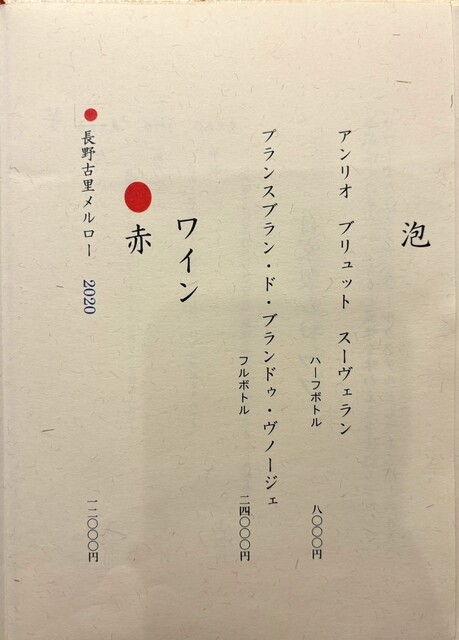 泡
アンリオ ブリュット スーヴェラン
ハーフボトル 八〇〇〇円
プランスブラン・ド・ブランドゥ・ヴノージェ
フルボトル 二四〇〇〇円
ワイン
赤
長野古里メルロー 2020 一二〇〇〇円